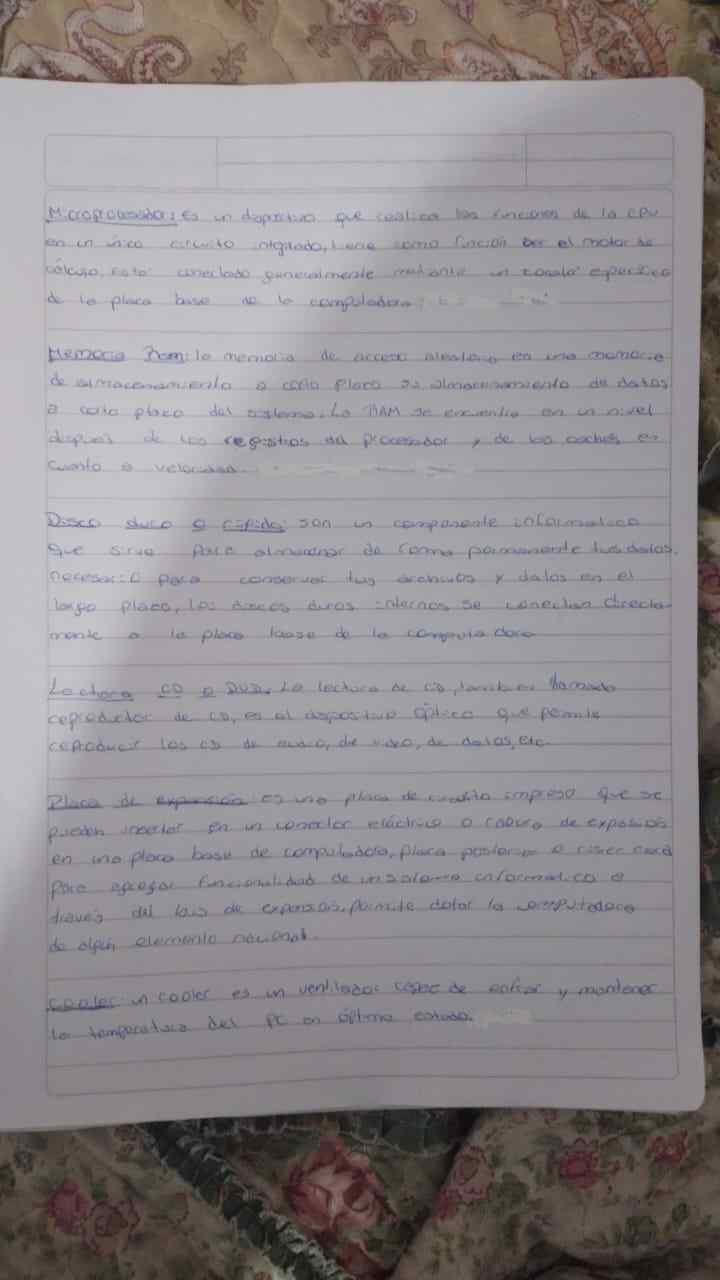 Microprocesador: Es un dispositivo que realiza las funciones de la CPU
en un único circuito integrado, tiene como función ser el motor de
cálculo, esta conectado generalmente mediante un especifico
de la placa base de la computadora
Memoria Ram: la memoria de acceso aleatorio es una memoria
de almacenamiento a corto plazo de almacenamiento de datos
a corto plazo del sistema. La RAM se encuentra en un nivel
después de los registros del procesador y de los caches en
cuanto a velocidad.
Disco duro o rígido: son un componente informatico
que sirve para almacenar de forma permanente tus datos.
necesario para conservar tus archivos y datos en el
largo plazo, los discos duros internos se conectan directa-
mente a la placa base de la computadora
Lectora CD o DVD: La lectora de CD, tambien llamado
reproductor de CD, es el dispositivo óptico que permite
reproducir los CD de audio, de video, de datos, etc.
Placa de expansión es una placa de circuito impreso que se
pueden insertar en un conector eléctrico o de
en una placa base de computadora, placa posterior o riser card
para agregar funcionalidad de un sistema informatico a
través del bus de permite dotar la computadora
de algún elemento
Cooler: un cooler es un ventilador capaz de enfriar y mantener
la temperatura del PC en óptimo estado.